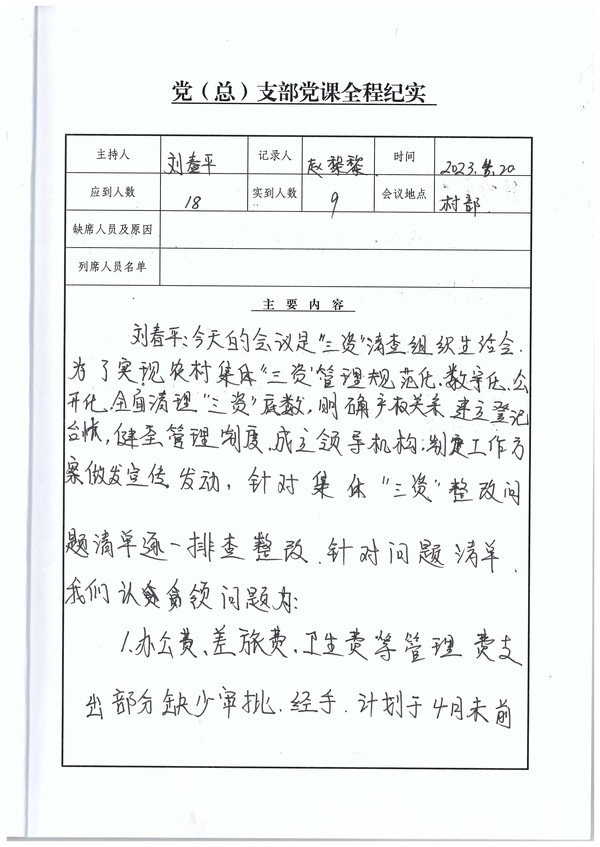 党（总）支部党课全程纪实
主持人 刘春平 记录人 赵黎黎 时间 2023. .20
应到人数 18 实到人数 9 会议地点 村部
缺席人员及原因
列席人员名单
主要内容
刘春平：今天的会议是“三资”清查组织生活会.
为了实现农村集体“三资”管理规范化、数字化、公
开化，全面清理“三资”底数，明确产权关系，建立登记
台帐，健全管理制度，成立领导机构；制定工作方
案做发宣传发动，针对集体“三资”整改问
题清单逐一排查整改，针对问题清单，
我们认领问题为：
1.办公费、差旅费、卫生费等管理费支
出部分缺少审批、经手.计划于4月末前